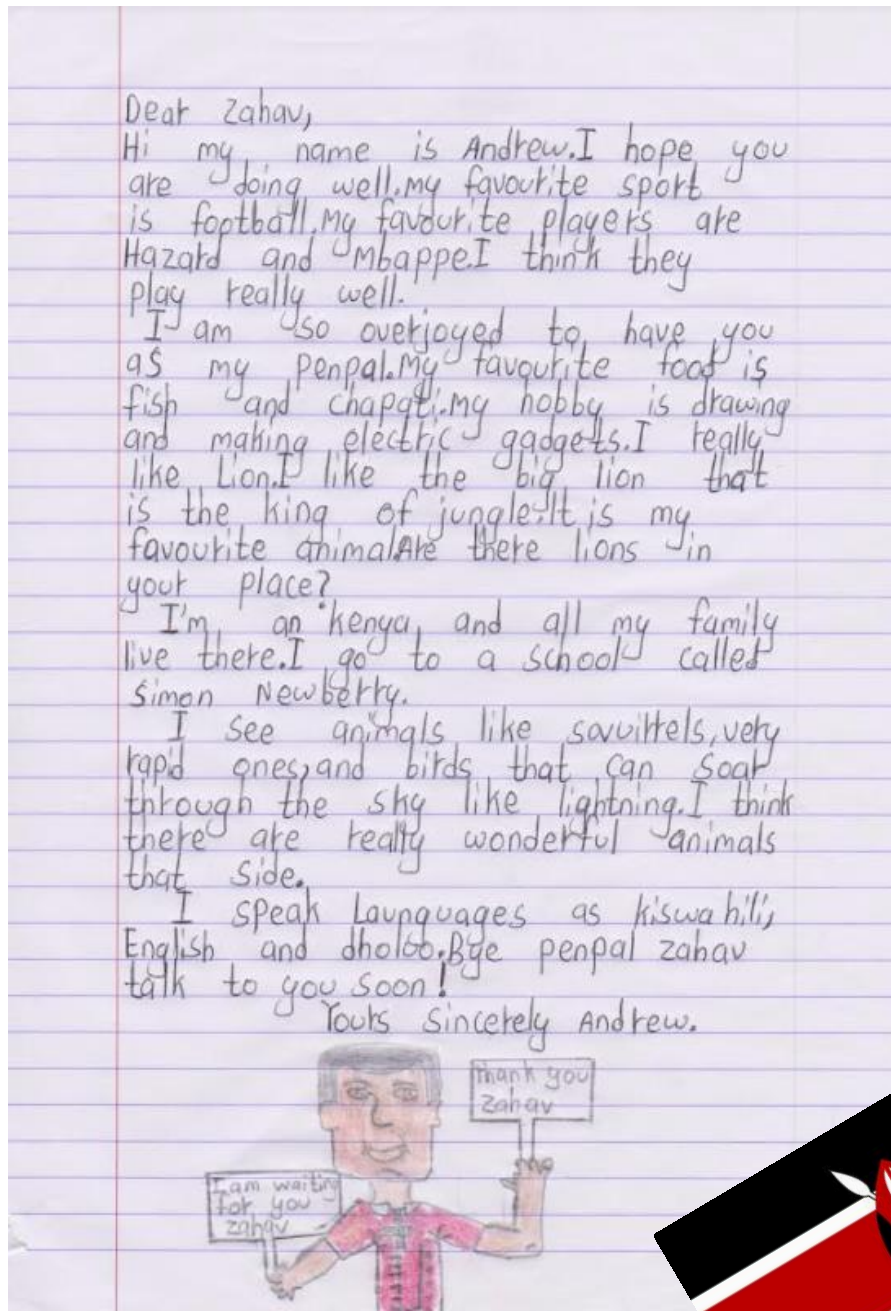 Dear Zahav,
Hi my name is Andrew.I hope you
are doing well.my favourite sport
is football.My favourite players are
Hazard and Mbappe.I think they
play really well.
I am so overjoyed to have you
as my penpal.My favourite food is
fish and chapati.My hobby is drawing
and making electric gadgets.I really
like Lion.I like the big lion that
is the king of jungle.It is my
favourite animal.Are there lions in
your place?
I'm an kenya and all my family
live there.I go to a school called
Simon Newberry.
I see animals like squirrels,very
rapid ones,and birds that can soar
through the sky like lightning.I think
there are really wonderful animals
that side.
I speak Launguages as kiswahili,
English and dholoo.Bye penpal zahav
talk to you soon!
Yours sincerely Andrew.
Thank you
Zahav
I am waiting
for you
zahav